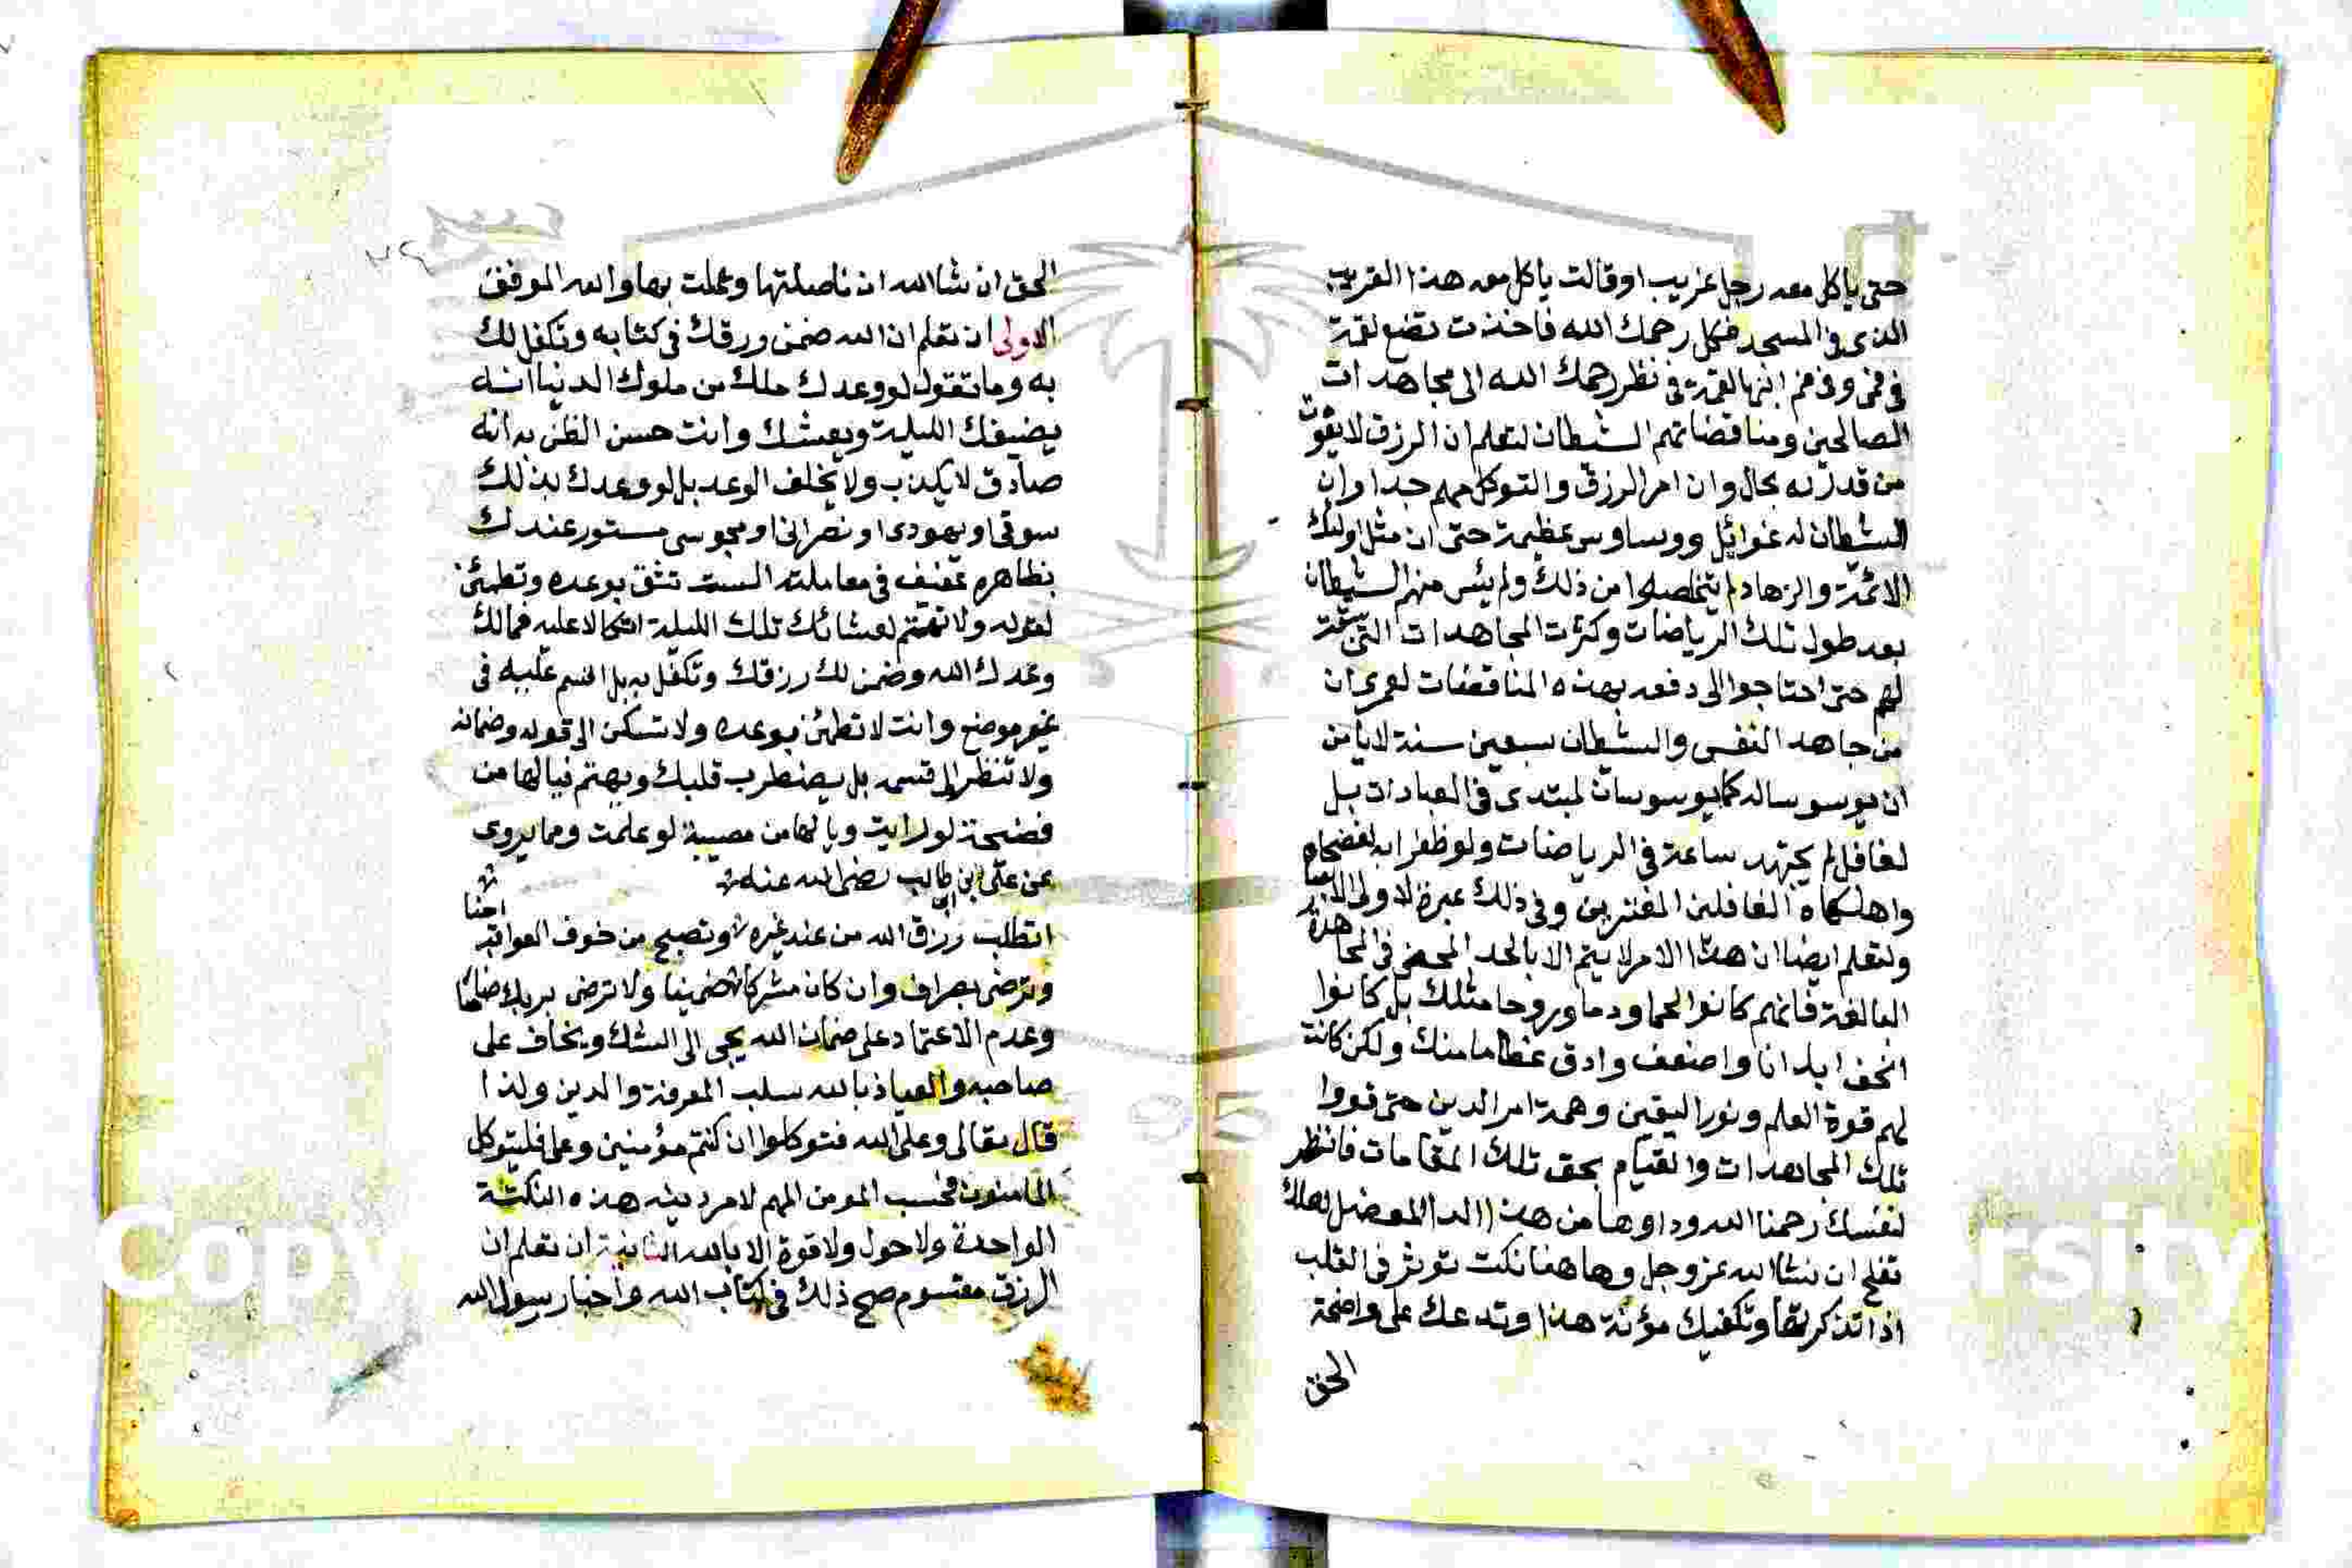 حتى ياكل معه رجل غريب او قالت ياكل معه هذا الغريب
الذى فى المسجد فكل رحمك الله فاخذت تضع لقمة
فى فمى وفى فم ابنها لقمة فى نظر رحمك الله الى مجاهدات
الصالحين ومناقضاتهم الشيطان لتعلم ان الرزق لا يفوت
من قدر له بحال وان امر الرزق والتوكل مهم جدا وان
الشيطان له غوائل ووساوس عظيمة حتى ان مثل اولئك
الائمة والزهاد لم يتخلصوا من ذلك ولم يئس منهم الشيطان
بعد طول تلك الرياضات وكثرت المجاهدات التى سبقت
لهم حتى احتاجوا الى دفعه بهذه المناقضات لعمرى ان
من جاهد النفس والشيطان سبعين سنة لا يامن
ان يوسوسا له كما يوسوسان لمبتدى فى العبادات بل
لغافل لم يجتهد ساعة فى الرياضات ولو ظفرا به لفضحاه
واهلكاه الغافلين المغترين وفى ذلك عبرة لاولى
ولتعلم ايضا ان هذا الامر لا يتم الا بالجد المحض فى المجاهدة
البالغة فانهم كانوا لحما ودما وروحا مثلك بل كانوا
انحف ابدانا واضعف وادق عظاما منك ولكن كانت
لهم قوة العلم ونور اليقين وهمة امر الدين حتى قووا
تلك المجاهدات والقيام بحق تلك المقامات فانظر
لنفسك رحمنا الله وداوها من هذا الدا المعضل لعلك
تفلح ان شا الله عز وجل وهاهنا نكت توثر فى القلب
اذا تذكرتها وتكفيك مؤنة هذا وتدعك على واضحة
الحق
الحق ان شا الله ان تاصلتها وعملت بها والله الموفق
الاولى ان تعلم ان الله ضمن ورزقك فى كتابه وتكفل لك
به وما تقول لو وعدك ملك من ملوك الدنيا انه
يضيفك الليلة ويعيشك وانت حسن الظن به انه
صادق لا يكذب ولا يخلف الوعد بل لو وعدك بذلك
سوقى او يهودى او نصرانى او مجوسى مستور عندك
بظاهره عفيف فى معاملته الست تثق بوعده وتطمئن
لقوله ولا تهتم لعشائك تلك الليلة اتكالا عليه فمالك
وعدك الله وضمن لك رزقك وتكفل به بل اقسم عليه فى
غير موضع وانت لا تطمئن بوعده ولا تسكن الى قوله وضمانه
ولا تنظر الى قسمه بل يضطرب قلبك ويهتم فيا لها من
فضيحة لو رايت ويا لها من مصيبة لو علمت ومما يروى
عن على ابن ابى طالب رضى الله عنه
اتطلب رزق الله من عند غيره وتصبح من خوف العواقب امنا
وترضى بصراف وان كان مشركا ضمينا ولا ترضى بربك ضامنا
وعدم الاعتماد على ضمان الله يجى الى الشك ويخاف على
صاحبه والعياذ بالله سلب المعرفة والدين ولذا
قال تعالى وعلى الله فتوكلوا ان كنتم مؤمنين وعلى فليتوكل
المامنون فحسب المومن المهم لامر دينه هذه النكتة
الواحدة ولا حول ولا قوة الا بالله الثانية ان تعلم ان
الرزق مقسوم صح ذلك فى كتاب الله واخبار رسول الله
Copy
rsity